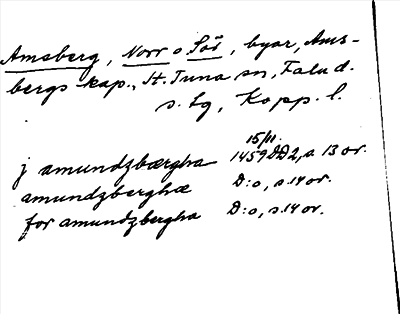 Amsberg, Norr o Sör, byar, Ams-
bergs kap., St. Tuna sn, Falu d.
s. lg, Kopp. l.
15/11.
j amundzbærgha 1459 DD2, s. 13 or.
amundzberghæ D:o, s. 14 or.
for amundzbergha D:o, s. 14 or.